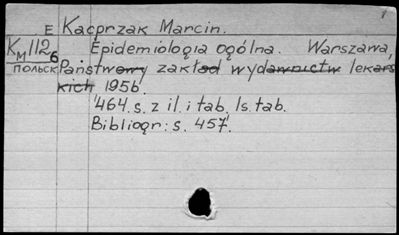 E Kacprzak Marcin.
Км 112 6 Epidemiologia ogólna. Warszawa,
польск Państwowy zakład wydawnictw lekars
kich 1956.
464.s. z il. i tab. ls. tab.
Bibliogr: s. 457.